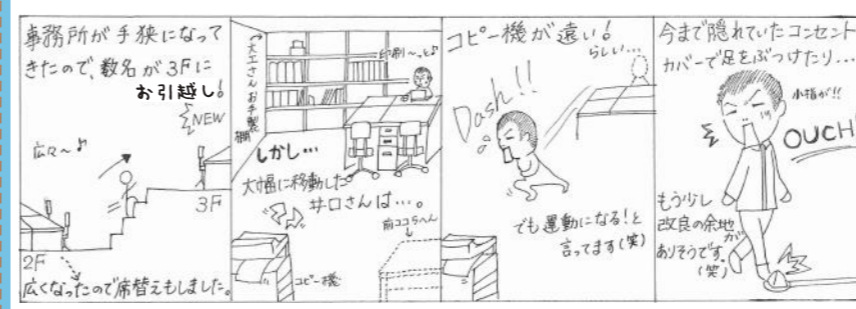 事務所が手狭になって
きたので、数名が3Fに
お引越し!
NEW
広々〜♪
3F
2F
広くなったので席替えもしました。
大工さんお手製
棚
印刷〜っと♪
しかし…
大幅に移動した
井口さんは…。
前ココらへん
コピー機
コピー機が遠い!
らしい…
Dash!!
でも運動になる!と
言ってます(笑)
今まで隠れていたコンセント
カバーで足をぶつけたり…
小指が!!
OUCH!
もう少し
改良の余地が
ありそうです。
(笑)